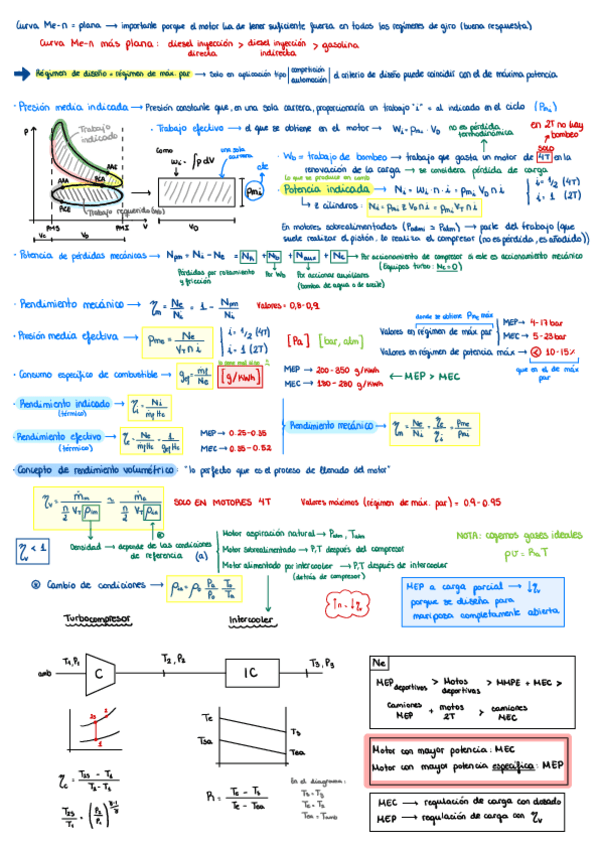 Curva Me-n = plana → importante porque el motor ha de tener suficiente fuerza en todos los regímenes de giro (buena respuesta)
Curva Me-n más plana: diesel inyección directa > diesel inyección indirecta > gasolina
Régimen de diseño = régimen de máx. par → Solo en aplicación tipo | competición automoción | el criterio de diseño puede coincidir con el de máxima potencia
· Presión media indicada → Presión constante que, en una sola carrera, proporcionaría un trabajo "i" = al indicado en el ciclo (Pmi)
P
Trabajo indicado
AAA
AAE
RCA
RCE
Trabajo requerido
PMS PMI V
Vc VD
· Trabajo efectivo → el que se obtiene en el motor → Wi = Pmi · VD
no es pérdida termodinámica
en 2T no hay bombeo
como Wi = ∫p dV
una sola carrera
cte
Pmi
VD
· Wb = trabajo de bombeo → trabajo que gasta un motor de 4T en la renovación de la carga → se considera pérdida de carga
solo
lo que se produce en
· Potencia indicada → Ni = Wi · n · i = Pmi VD n i
i = 1/2 (4T)
i = 1 (2T)
z cilindros: Ni = Pmi z VD n i = Pmi VT n i
En motores sobrealimentados (Padmi > Patm) → parte del trabajo (que suele realizar el pistón, lo realiza el compresor (no es pérdida, es añadido))
· Potencia de pérdidas mecánicas → Npm = Ni - Ne = NR + Nb + Naux + Nc → Por accionamiento de compresor si este es accionamiento mecánico
(Equipos turbo: Nc = 0)
Pérdidas por rozamiento y fricción
Por Wb
Por accionar auxiliares
(bomba de agua o de aceite)
· Rendimiento mecánico → ηm = Ne/Ni = 1 - Npm/Ni
Valores = 0,8-0,9
· Presión media efectiva → Pme = Ne / VT n i
i = 1/2 (4T)
i = 1 (2T)
[Pa] [bar, atm]
donde se obtiene Pme máx
Valores en régimen de máx par
MEP → 4-17 bar
MEC → 5-23 bar
Valores en régimen de potencia máx → 10-15%
que en el de máx par
· Consumo específico de combustible → gef = ṁf / Ne
[g/kWh]
MEP → 200-350 g/kWh
MEC → 180-280 g/kWh
← MEP > MEC
· Rendimiento indicado → ηi = Ni / ṁf Hc
(térmico)
· Rendimiento efectivo → ηe = Ne / ṁf Hc = 1 / gef Hc
(térmico)
MEP → 0.25-0.35
MEC → 0.35-0.52
Rendimiento mecánico → ηm = Ne/Ni = ηe/ηi = Pme/Pmi
· Concepto de rendimiento volumétrico: "lo perfecto que es el proceso de llenado del motor"
SOLO EN MOTORES 4T
Valores máximos (régimen de máx. par) = 0.9-0.95
ηv < 1
Densidad → depende de las condiciones de referencia (a)
Motor aspiración natural → Patm, Tatm
Motor sobrealimentado → P,T después del compresor
Motor alimentado por intercooler → P,T después de intercooler
(detrás de compresor)
NOTA: cogemos gases ideales
Cambio de condiciones →
↑n → ↓ηv
MEP a carga parcial → ↓ηv
porque se diseña para
mariposa completamente abierta
Turbocompresor
Intercooler
amb
T1,P1
C
T2, P2
IC
T3, P3
Te
Ts
Tsa
Tea
ηc = T2s - T1 / T2 - T1
R = Te - Ts / Te - Tea
En el diagrama:
Ne
MEP deportivos > Motos deportivas > MMPE + MEC >
Camiones MEP + motos 2T > camiones MEC
Motor con mayor potencia: MEC
Motor con mayor potencia específica: MEP
MEC → regulación de carga con dosado
MEP → regulación de carga con ηv